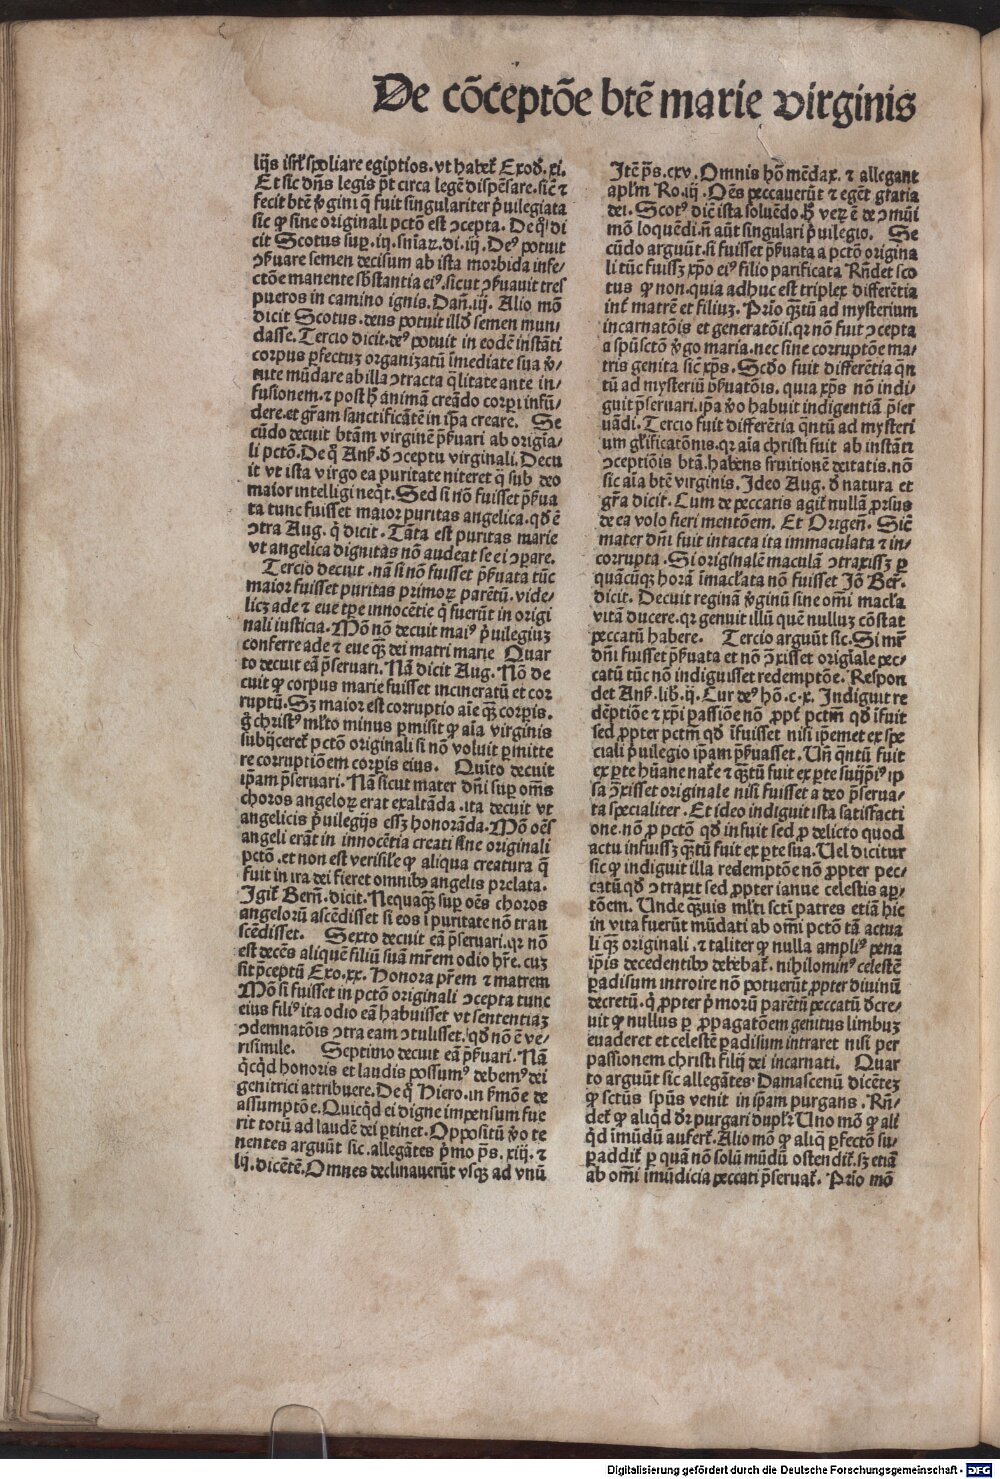 De cōceptōe btē marie virginis
lijs isrl̄ spoliare egiptios. vt habet̄ Exod̄. xi.
Et sic dn̄s legis pt̄ circa legē dispēsare. sicē ⁊
fecit btē v̄gini q̄ fuit singulariter p̄uilegiata
sic ꝙ sine originali pctō est ꝯcepta. De qͦ di
cit Scotus sup. iij. sniaꝝ. di. iij. Deꝰ potuit
ꝯẜuare semen decisum ab ista morbida infe⸗
ctōe manente sbstantia eiꝰ. sicut ꝯẜuauit tres
pueros in camino ignis. Dan̄. iij. Alio mō
dicit Scotus. deus potuit illd̄ semen mun⸗
dasse. Tercio dicit. deꝰ potuit in eodē instāti
corpus ꝑfectuꝫ organizatū īmediate sua v̄⸗
tute mūdare ab illa ꝯtracta q̄litate ante in⸗
fusionem. ⁊ post hͦ animā creādo corpi infū⸗
dere. et gr̄am sanctificātē in ip̄a creare. Se
cūdo decuit btām virginē p̄ẜuari ab origīa⸗
li pctō. De q̄ Anẜ. d̄ ꝯceptu virginali. Decu
it vt ista virgo ea puritate niteret q̄ sub deo
maior intelligi neqͥt. Sed si nō fuisset p̄ẜua
ta tunc fuisset maior puritas angelica. qd̄ ē
ꝯtra Aug. q̄ dicit. Tāta est puritas marie
vt angelica dignitas nō audeat se ei ꝯpare.
Tercio decuit. nā si nō fuisset p̄ẜuata tūc
maior fuisset puritas primoꝝ parētū. vide⸗
licꝫ ade ⁊ eue tpe innocētie q̄ fuerūt in origi
nali iusticia. Mō nō decuit maiꝰ p̄uilegiuꝫ
conferre ade ⁊ eue qͣꝫ dei matri marie Quar
to decuit eā p̄seruari. Nā dicit Aug. Nō de
cuit ꝙ corpus marie fuisset incineratū et cor
ruptū. Sꝫ maior est corruptio aīe qͣꝫ corꝑis.
g̊ christꝰ ml̄to minus ꝑmisit ꝙ aīa virginis
subijceret̄ pctō originali si nō voluit ꝑmitte
re corruptiōem corꝑis eius. Quīto decuit
ip̄am p̄seruari. Nā sicut mater dn̄i suꝑ om̄s
choros angeloꝝ erat exaltāda. ita decuit vt
angelicis p̄uilegijs essꝫ honorāda. Mō oēs
angeli erāt in innocētia creati sine originali
pctō. et non est verisil̄e ꝙ aliqua creatura q̄
fuit in ira dei fieret omnibꝰ angelis prelata.
Igit̄ Bern̄. dicit. Nequaqͣꝫ suꝑ oēs choros
angelorū ascēdisset si eos ī puritate nō tran
scēdisset. Sexto decuit eā p̄seruari. qr nō
est decēs aliquē filiū suā mr̄em odio hr̄e. cuꝫ
sit p̄ceptū Exo. xx. Honora pr̄em ⁊ matrem
Mō si fuisset in pctō originali ꝯcepta tunc
eius filiꝰ ita odio eā habuisset vt sententiaꝫ
ꝯdemnatōis ꝯtra eam ꝯtulisset. qd̄ nō ē ve⸗
risimile. Septimo decuit eā p̄ẜuari. Nā
qͥcqͥd honoris et laudis possumꝰ debemꝰ dei
genitrici attribuere. De q̄ Hiero. in ẜmōe de
assumptōe. Quicqͥd ei digne impensum fue
rit totū ad laudē dei ꝑtinet. Oppositū v̄o te
nentes arguūt sic. allegātes p̄mo ps̄. xiij. ⁊
lij. dicētē. Omnes declinauerūt vsqꝫ ad vnū
Itē ps̄. cxv. Omnis hō mēdax. ⁊ allegant
apl̄m Ro. iij. Oēs peccauerūt ⁊ egēt gratia
dei. Scotꝰ dicē ista soluēdo. hͦ veꝝ ē de ꝯmūi
mō loquēdi. n̄ aūt singulari p̄uilegio. Se
cūdo arguūt. si fuisset p̄ẜuata a pctō origina
li tūc fuissꝫ xp̄o eiꝰ filio parificata Rn̄det sco
tus ꝙ non. quia adhuc est triplex differētia
int̄ matrē et filiuꝫ. Prīo qͣꝫtū ad mysterium
incarnatōis et generatōis. qr nō fuit ꝯcepta
a spūsctō v̄go maria. nec sine corruptōe ma⸗
tris genita sicē xp̄s. Scd̄o fuit differētia qͣn
tū ad mysteriū p̄ẜuatōis. quia xp̄s nō indi⸗
guit p̄seruari. ip̄a v̄o habuit indigentiā p̄ser
uādi. Tercio fuit differētia qͣntū ad mysteri
um gl̄ificatōnis. qr aīa christi fuit ab instāti
ꝯceptiōis btā. habens fruitionē deitatis. nō
sic aīa btē virginis. Ideo Aug. d̄ natura et
gr̄a dicit. Cum de peccatis agit̄ nullā ꝓrsus
de ea volo fieri mentōem. Et Origen̄. Sicē
mater dn̄i fuit intacta ita immaculata ⁊ in⸗
corrupta. Si originalē maculā ꝯtraxissꝫ ꝑ
quācūqꝫ horā īmacl̄ata nō fuisset Jo. Ber.
dicit. Decuit reginā v̄ginū sine om̄i macl̄a
vitā ducere. qr genuit illū quē nulluꝫ cōstat
peccatū habere. Tercio arguūt sic. Si mr̄
dn̄i fuisset p̄ẜuata et nō ꝯ̄xisset origīale pec⸗
catū tūc nō indiguisset redemptōe. Respon
det Anẜ. lib. ij. Cur deꝰ hō. c. x. Indiguit re
dēptiōe ⁊ xp̄i passiōe nō ꝓpt̄ pctm̄ qd̄ īfuit
sed ꝓpter pctm̄ qd̄ īfuisset nisi ip̄emet ex spe
ciali p̄uilegio ip̄am p̄ẜuasset. Un̄ qͣntū fuit
ex ꝑte hūane nat̄e ⁊ qͣꝫtū fuit ex ꝑte suijpͥiꝰ ip̄
sa ꝯ̄xisset originale nisi fuisset a deo p̄serua⸗
ta specialiter. Et ideo indiguit ista satisfacti
one. nō ꝓ pctō qd̄ infuit sed ꝓ delicto quod
actu infuissꝫ qͣꝫtū fuit ex ꝑte sua. Uel dicitur
sic ꝙ indiguit illa redemptōe nō ꝓpter pec⸗
catū qd̄ ꝯtraxit sed ꝓpter ianue celestis aꝑ⸗
tōem. Unde qͣꝫuis ml̄ti scti patres etiā hic
in vita fuerūt mūdati ab om̄i pctō tā actua
li qͣꝫ originali. ⁊ taliter ꝙ nulla ampliꝰ pena
ip̄is decedentibꝰ debebat̄. nihilominꝰ celestē
ꝑadisum introire nō potuerūt ꝓpter diuinū
decretū. q̄ ꝓpter p̄morū parētū peccatū d̄cre⸗
uit ꝙ nullus ꝑ ꝓpagatōem genitus limbuꝫ
euaderet et celestē ꝑadisum intraret nisi per
passionem christi filij dei incarnati. Quar
to arguūt sic allegātes Damascenū dicēteꝫ
ꝙ sctūs spūs venit in ip̄am purgans. Rn̄⸗
det̄ ꝙ aliqͥd dr̄ purgari duplr̄ Uno mō ꝙ ali
qͥd īmūdū aufert̄. Alio mō ꝙ aliq̄ ꝑfectō su⸗
ꝑaddit̄ ꝑ quā nō solū mūdū ostendit̄. sꝫ etiā
ab om̄i īmūdicia peccati p̄seruat̄. Prīo mō
Digitalisierung gefördert durch die Deutsche Forschungsgemeinschaft - DFG